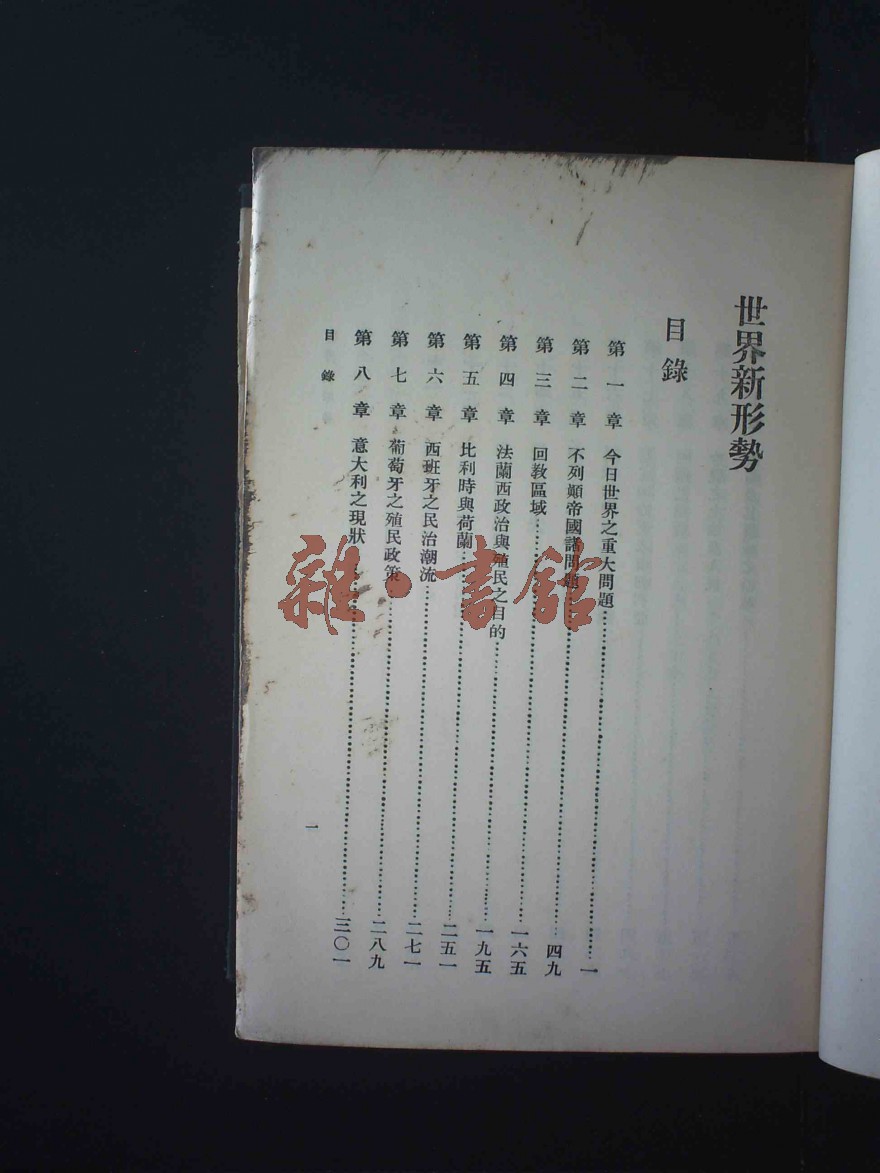 世界新形勢
目錄
第一章 今日世界之重大問題……一
第二章 不列顚帝國諸問題……四九
第三章 回敎區域……一六五
第四章 法蘭西政治與殖民之目的……一九五
第五章 比利時與荷蘭……二五一
第六章 西班牙之民治潮流……二七一
第七章 葡萄牙之殖民政策……二八九
第八章 意大利之現狀……三〇一
目錄
一
雜·書館